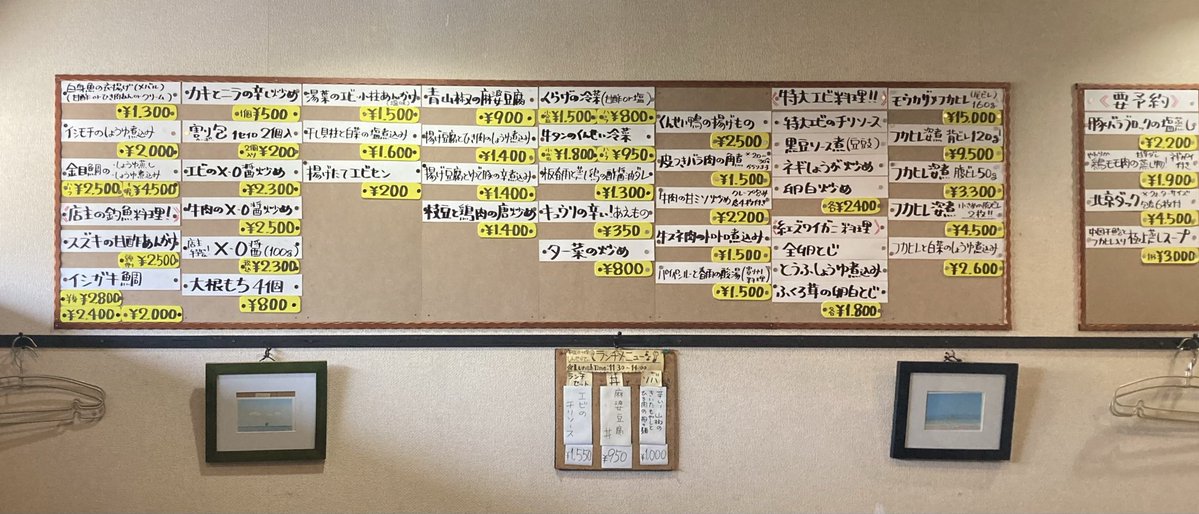 白身魚の衣揚げ(メバル)
¥1.300
イシモチのしょうゆ煮込み
¥2.000
金目鯛の
しょうゆ蒸し
しょうゆ煮込み
¥2500
¥4500
店主の釣魚料理!
スズキの甘酢あんかけ
¥2500
イシガキ鯛
¥2800
¥2.400
¥2.000
カキとニラの辛し炒め
1個¥500
割包 1セット2個入
2個入り¥200
エビのX・O醤炒め
¥2.300
牛肉のX・O醤炒め
¥2.500
X・O醤(100g)
¥2.300
大根もち 4個
¥800
湯葉のエビ小柱あんかけ
¥1.500
干し貝柱と白菜の塩煮込み
¥1.600
揚げたてエビセン
¥200
青山椒の麻婆豆腐
¥900
揚げ豆腐とひき肉のしょうゆ煮込み
¥1.400
¥1.400
枝豆と鶏肉の唐炒め
¥1.400
くらげの冷菜(甘酢or塩)
¥1.500
¥800
牛タンのくんせい冷菜
¥1.800
¥950
¥1.300
キュウリの辛い!あえもの
¥350
ター菜の炒め
¥800
くんせい鴨の揚げもの
¥2500
皮つきバラ肉の角煮
¥1.500
牛肉の甘ミソ炒め
¥2200
牛スネ肉のトロトロ煮込み
¥1.500
¥1.500
《特大エビ料理!!》
特大エビのチリソース
黒豆ソース煮(豆豉)
ネギしょうが炒め
卵白炒め
各¥2400
《紅ズワイガニ料理》
全卵とじ
とうふしょうゆ煮込み
ふくろ茸の卵白とじ
各¥1.800
モウカザメフカヒレ(尾ビレ)160g
¥15.000
フカヒレ姿煮 背ビレ120g
¥9.500
フカヒレ姿煮 腹ビレ50g
¥3300
フカヒレ姿煮 小さめの腹ビレ2枚!!
¥4.500
フカヒレと白菜のしょうゆ煮込み
¥2.600
《要予約》
豚バラブロックの塩蒸し
¥2.200
¥1.900
北京ダック
¥4.500
極上蒸しスープ
¥3000
ランチメニュー
Lunch Time 11:30~14:00
ランチセット
丼
ソバ
エビのチリソース
¥1,550
麻婆豆腐丼
¥950
¥1,000